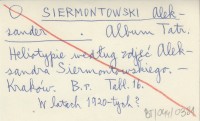 SIERMONTOWSKI Alek-
sander. Album Tatr.
Heliotypie według zdjęć Alek-
sandra Siermontowskiego. —
Kraków. B.r. Tabl. 16.
W latach 1920-tych?